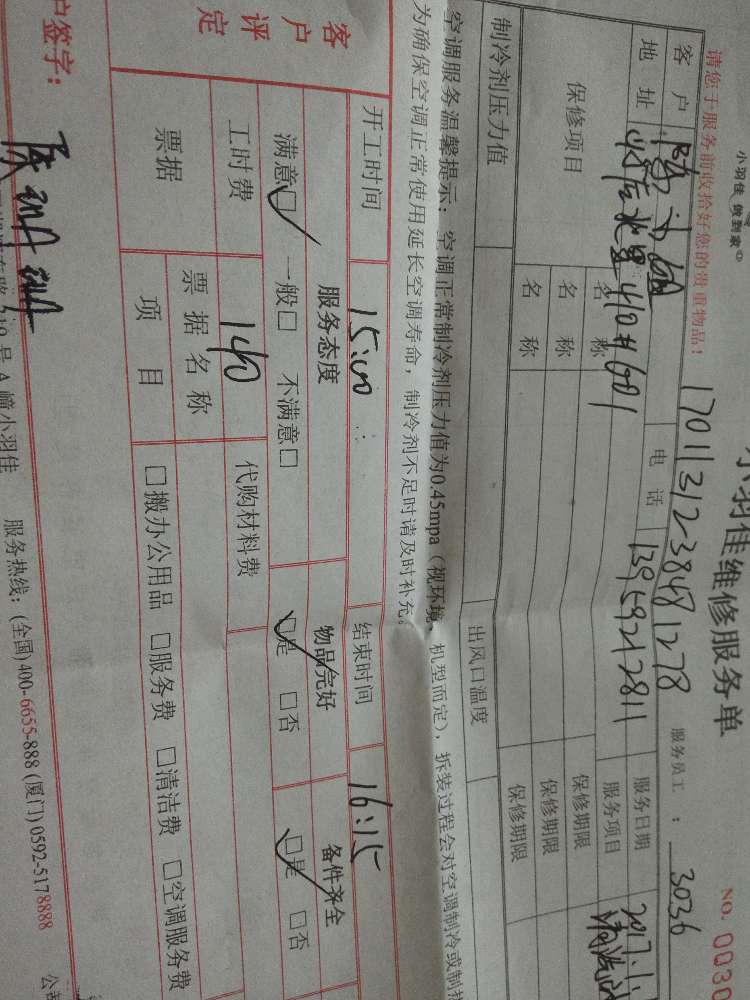 小羽佳 做到家
小羽佳维修服务单
NO. 0030
请您于服务前收拾好您的贵重物品！
1701131238481278
服务员工：3036
客户
电话 13959212811
服务日期 2017.1.
地址 410#601
服务项目
保修项目
名称
保修期限
名称
保修期限
名称
保修期限
制冷剂压力值
出风口温度
空调服务温馨提示：空调正常制冷剂压力值为0.45mpa（视环境、机型而定），拆装过程会对空调制冷或制热
为确保空调正常使用延长空调寿命，制冷剂不足时请及时补充。
客户评定
开工时间 15:00
结束时间 16:15
服务态度
物品完好
备件齐全
满意□ 一般□ 不满意□
□是 □否
□是 □否
工时费 140
代购材料费
票据
票据名称
项目
□搬办公用品 □服务费 □清洁费 □空调服务费
户签字：
210号A幢小羽佳 服务热线：(全国)400-6655-888 (厦门)0592-5178888